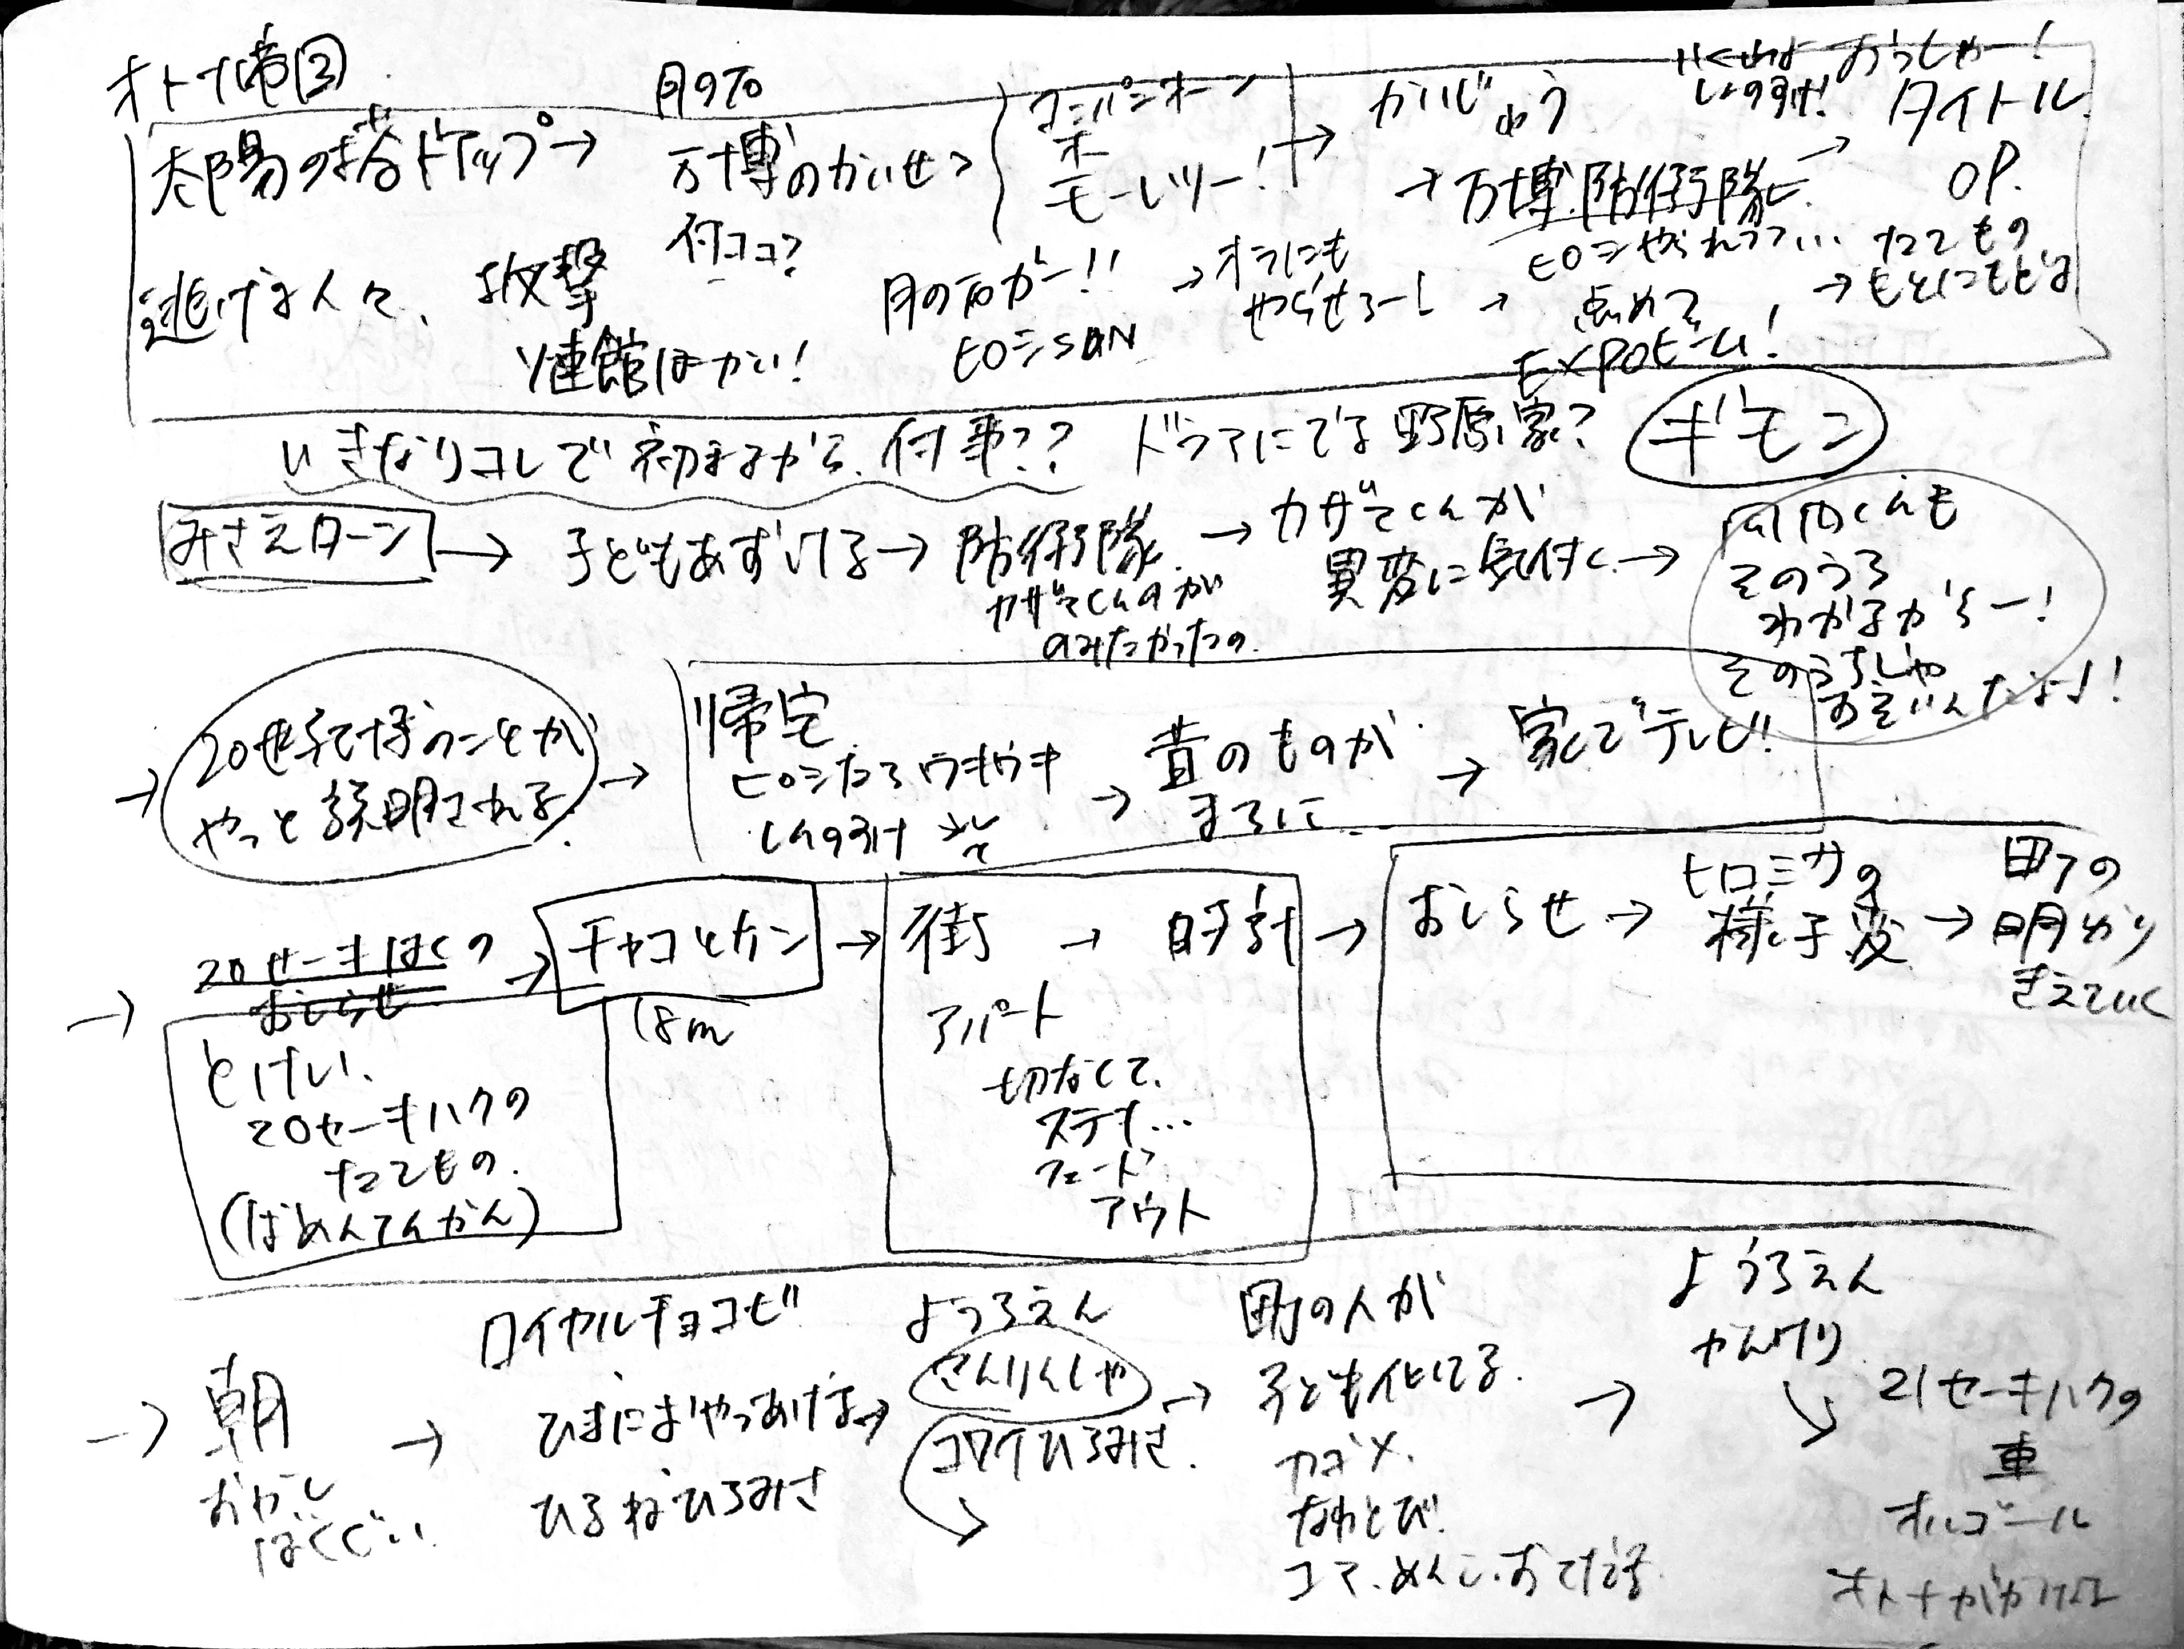 オトナ帝国
太陽の塔ドアップ→
月の石
万博のかいせつ
何ココ?
コンパニオン
オー
モーレツー!
→ かいじゅう
→ 万博防衛隊に
しんのすけ!
→ タイトル
OP.
逃げる人々、攻撃
ソ連館はかい!
月の石がー!!
ヒロシSUN
→ オラにも
やらせろー!
→ ヒロシやられてて…
EXPOビーム!
→ たてもの
もとにもどる
いきなりコレで初まるから、何事??
ドラマにでる野原家?
ギモン
みさえターン → 子どもあずける → 防衛隊
カザマくんのが
のみたかったの
→ カザマくんが
異変に気付く →
そのうち
わかるからー!
そのうちじゃ
おそいんだよー!
→ 20世紀博のコトが
やっと説明される
→ 帰宅
ヒロシたちウキウキ
しんのすけ
→ 昔のものが
まちに
→ 家でテレビ!
→ 20せーきはくの
おしらせ
とけい、
20セーキハクの
たてもの.
(ばめんてんかん)
→ チャコとケン
18m
→ 街 → 時計
アパート
切なくて、
ステキ…
フェード
アウト
→ おしらせ → ヒロミサの
様子変
→ 町の
明かり
きえていく
→ 朝
おかし
ばくぐい
→ ロイヤルチョコビ
ひまにおやつあげる→
ひるねひろみさ
ようちえん
さんりんしゃ
コワイひろみさ.
→ 町の人が
子ども化してる.
カゴメ.
なわとび.
コマ、めんこ、おてだま
→ ようちえん
かんけり
21セーキハクの
車
オルゴール